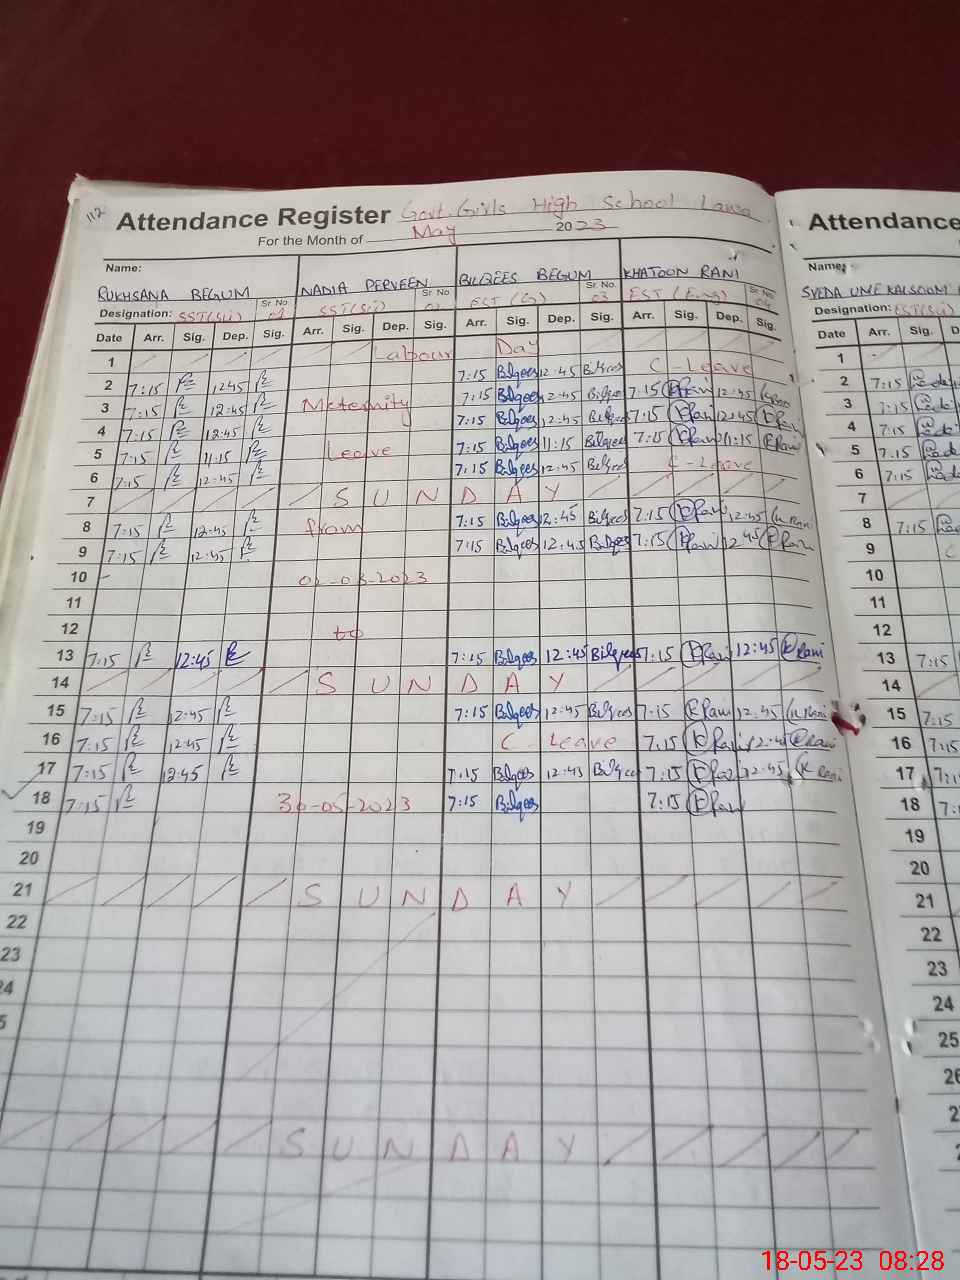 112
Attendance Register Govt. Girls High School
For the Month of May 2023
Name: RUKHSANA BEGUM NADIA PERVEEN BILQEES BEGUM KHATOON RANI
Designation: SST(Sci) Sr. No. 01 SST(Sci) Sr. No. 02 EST Sr. No. 03 EST (Eng) Sr. No. 04
Date Arr. Sig. Dep. Sig. Arr. Sig. Dep. Sig. Arr. Sig. Dep. Sig. Arr. Sig. Dep. Sig.
1 Labour Day
2 7:15 12:45 7:15 Bilqees 12:45 Bilqees C-Leave
3 7:15 12:45 Meternity 7:15 Bilqees 12:45 Bilqees 7:15 K Rani 12:45 K Rani
4 7:15 12:45 7:15 Bilqees 12:45 Bilqees 7:15 K Rani 12:45 K Rani
5 7:15 11:15 Leave 7:15 Bilqees 11:15 Bilqees 7:15 K Rani 11:15 K Rani
6 7:15 12:45 7:15 Bilqees 12:45 Bilqees Leave
7 S U N D A Y
8 7:15 12:45 from 7:15 Bilqees 12:45 Bilqees 7:15 K Rani 12:45 K Rani
9 7:15 12:45 7:15 Bilqees 12:45 Bilqees 7:15 K Rani 12:45 K Rani
10
11
12 to
13 7:15 12:45 7:15 Bilqees 12:45 Bilqees 7:15 K Rani 12:45 K Rani
14 S U N D A Y
15 7:15 12:45 7:15 Bilqees 12:45 Bilqees 7:15 K Rani 12:45 K Rani
16 7:15 12:45 C-Leave 7:15 K Rani 12:45 K Rani
17 7:15 12:45 7:15 Bilqees 12:45 Bilqees 7:15 K Rani 12:45 K Rani
18 7:15 30-05-2023 7:15 Bilqees 7:15 K Rani
19
20
21 S U N D A Y
22
23
S U N D A Y
Attendance
Name:
SYEDA UME KALSOOM
Designation: EST(Sci)
Date Arr. Sig.
1
2 7:15
3 7:15
4 7:15
5 7:15
6 7:15
7
8 7:15
9 C
10
11
12
13 7:15
14
15 7:15
16 7:15
17
18
19
20
21
22
23
24
25
18-05-23 08:28